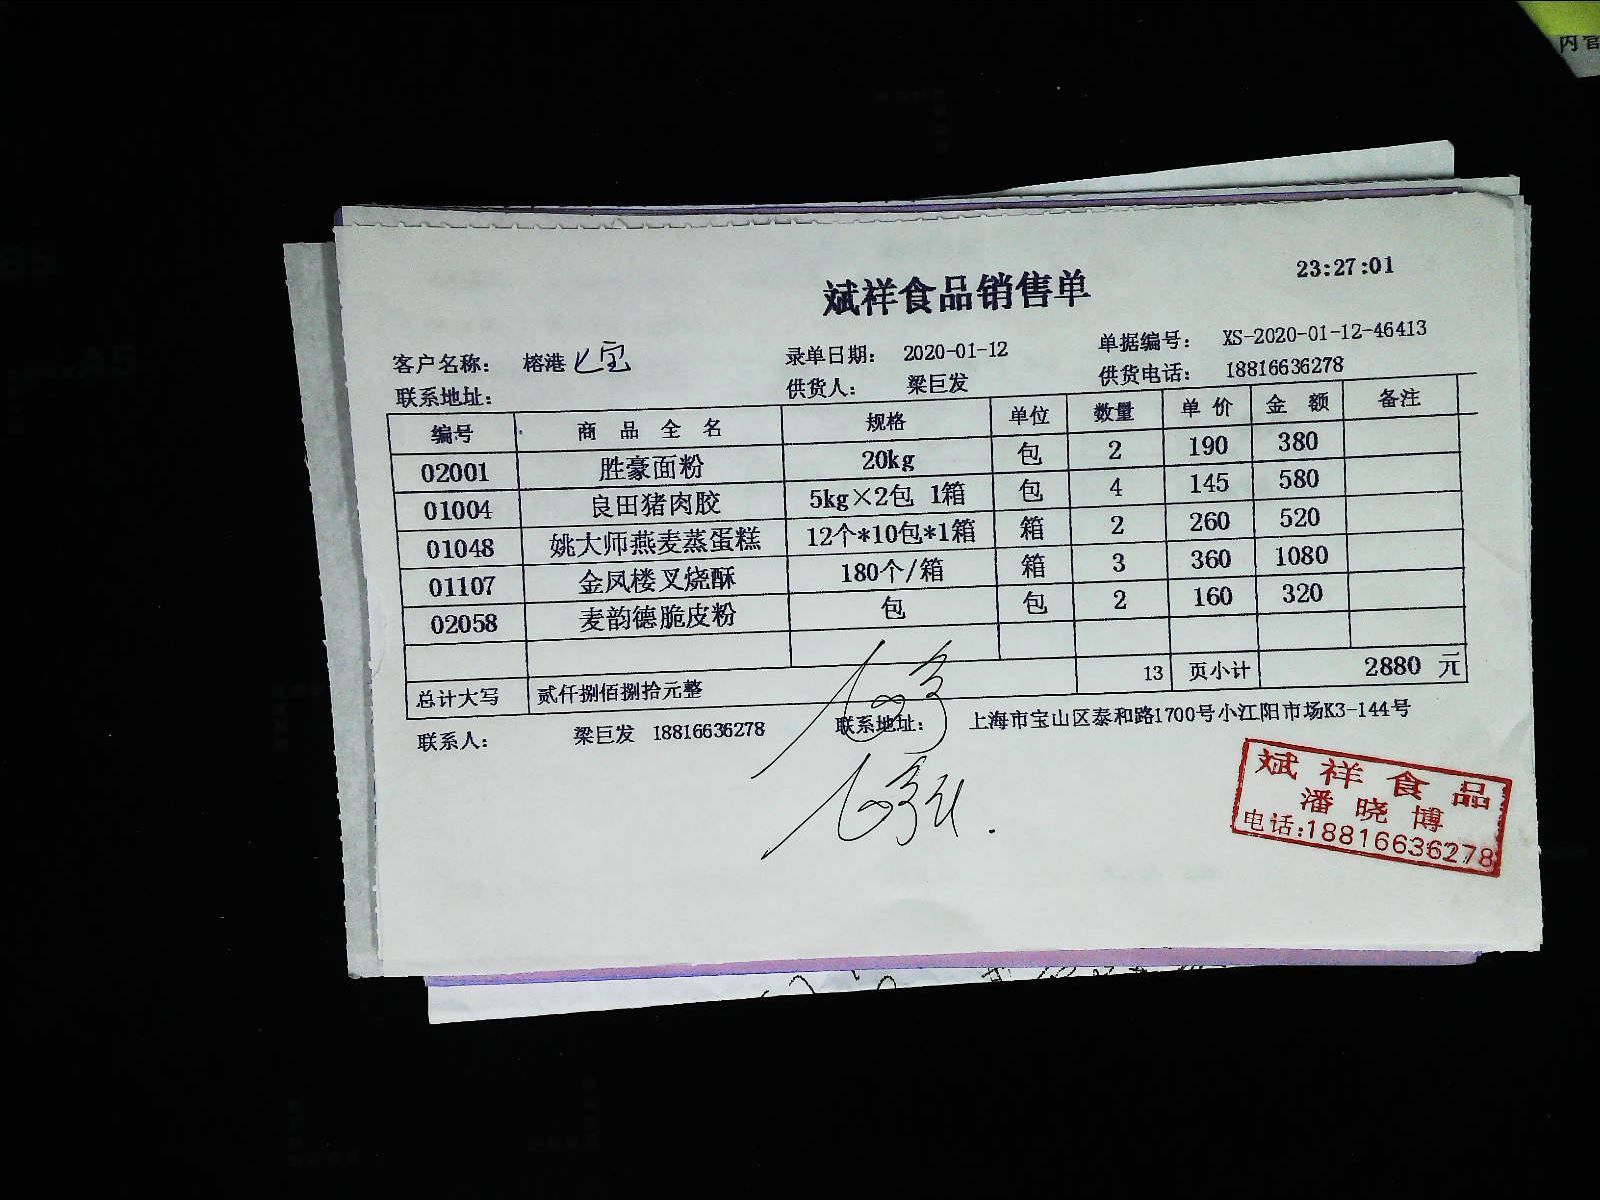 内管
23:27:01
斌祥食品销售单
客户名称: 榕港七宝 录单日期: 2020-01-12 单据编号: XS-2020-01-12-46413
联系地址: 供货人: 梁巨发 供货电话: 18816636278
编号 商品全名 规格 单位 数量 单价 金额 备注
02001 胜豪面粉 20kg 包 2 190 380
01004 良田猪肉胶 5kg×2包 1箱 包 4 145 580
01048 姚大师燕麦蒸蛋糕 12个*10包*1箱 箱 2 260 520
01107 金凤楼叉烧酥 180个/箱 箱 3 360 1080
02058 麦韵德脆皮粉 包 包 2 160 320
总计大写 贰仟捌佰捌拾元整 13 页小计 2880 元
联系人: 梁巨发 18816636278 联系地址: 上海市宝山区泰和路1700号小江阳市场K3-144号
斌祥食品
潘晓博
电话:18816636278